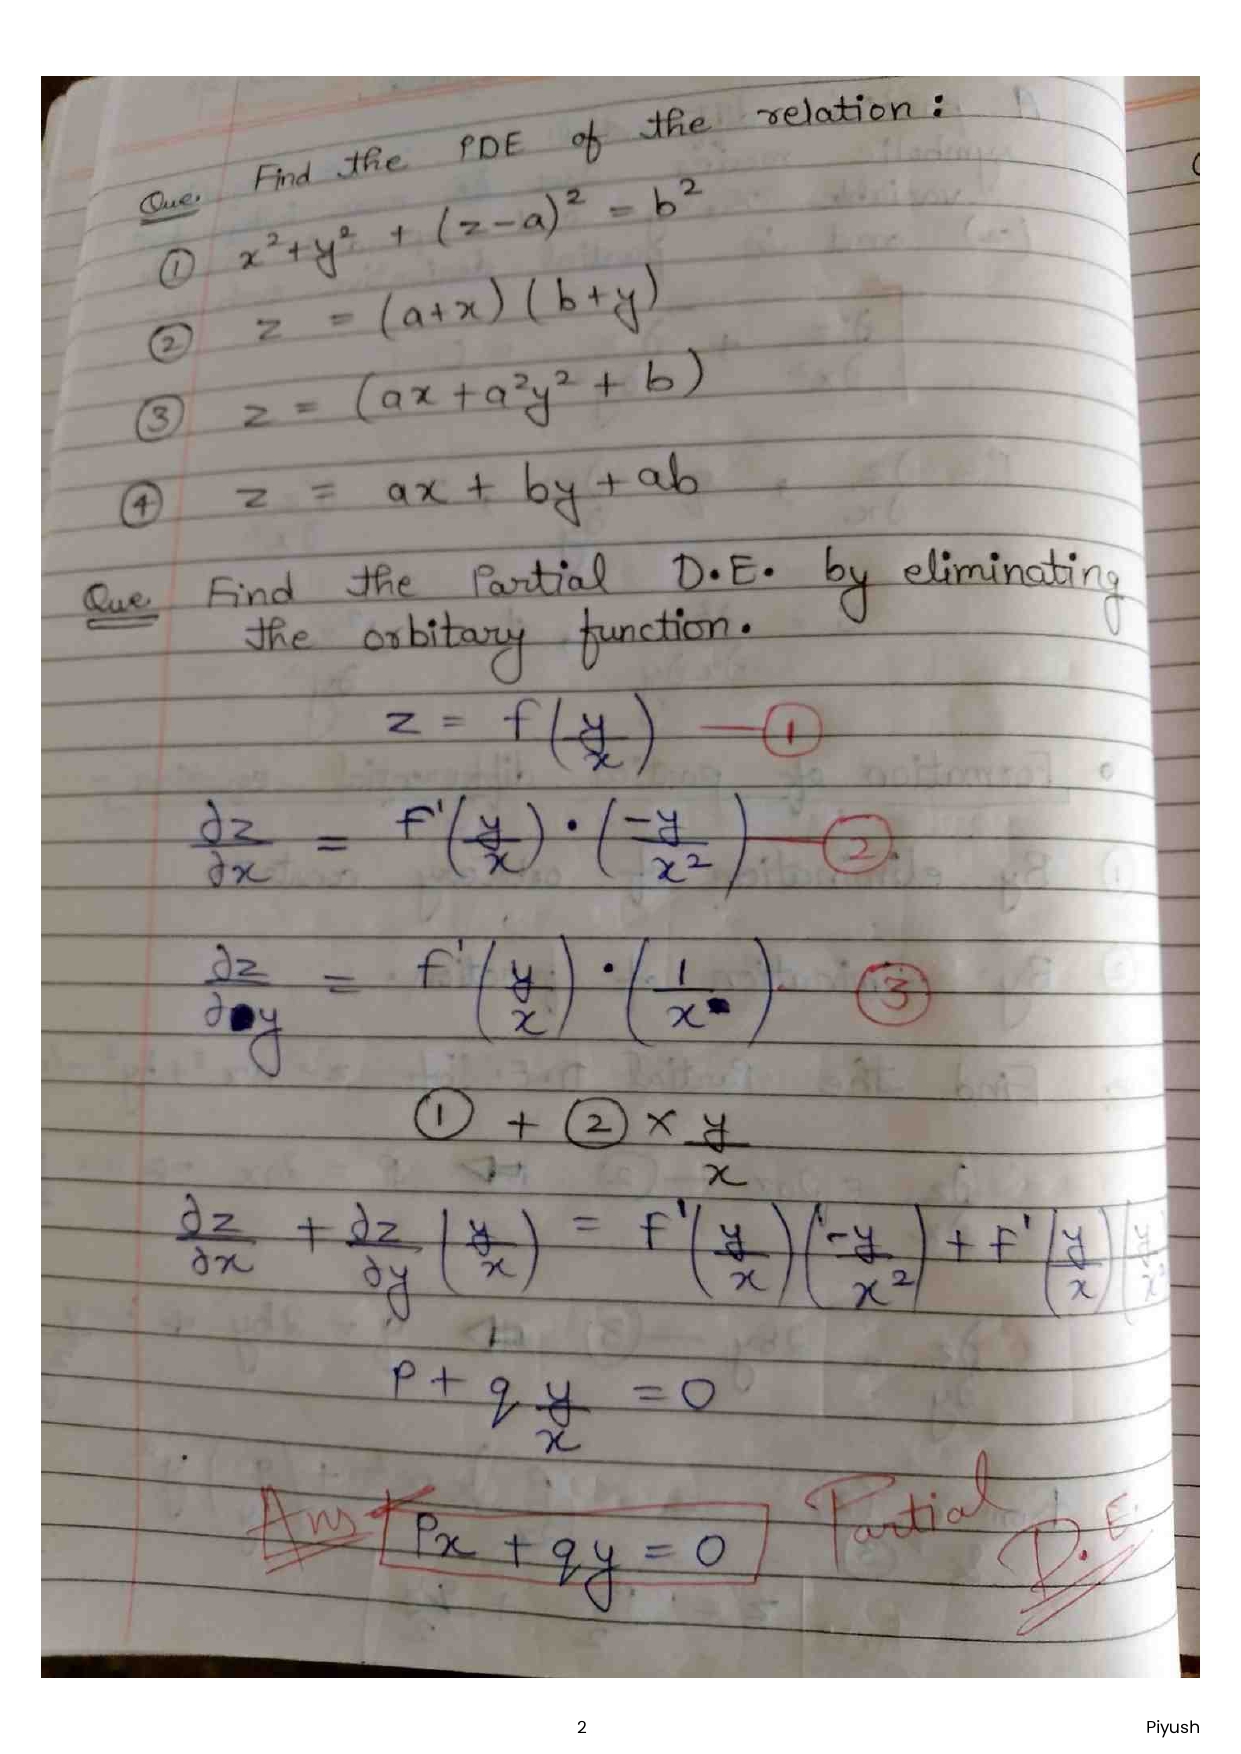 Que. Find the PDE of the relation :
① x² + y² + (z - a)² = b²
② z = (a+x) (b+y)
③ z = (ax + a²y² + b)
④ z = ax + by + ab
Que Find the Partial D.E. by eliminating
the orbitary function.
z = f(y/x) — ①
∂z/∂x = f'(y/x) · (-y/x²) — ②
∂z/∂y = f'(y/x) · (1/x) ③
① + ② × y/x
∂z/∂x + ∂z/∂y (y/x) = f'(y/x) (-y/x²) + f'(y/x) (y/x²)
P + q y/x = 0
Ans Px + qy = 0 Partial D.E.
2 Piyush